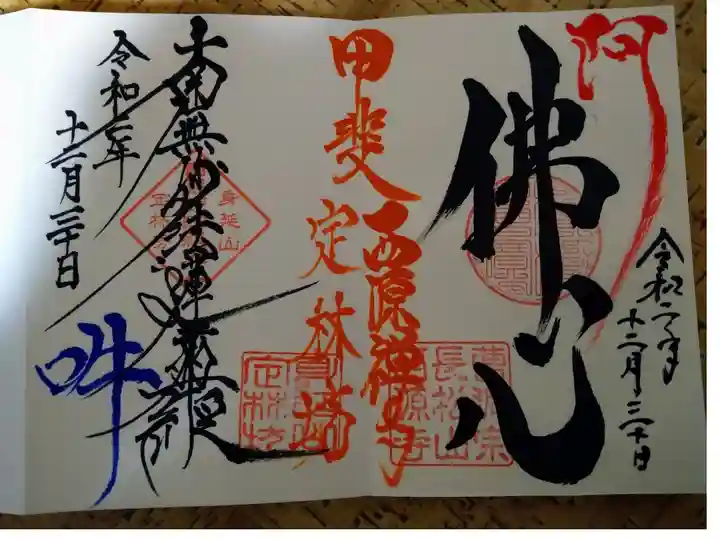 阿
佛心
令和二年
十二月三十日
西源禅寺
長松山
甲斐
定林坊
身延山
南無妙法蓮華経
令和二年
十二月三十日
吽
定林坊